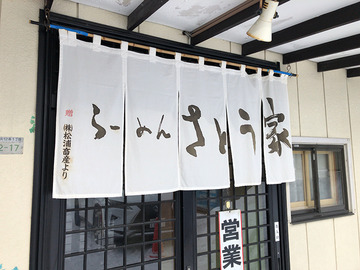 らーめん さとう家
贈 ㈱松浦畜産より
営業
2-17